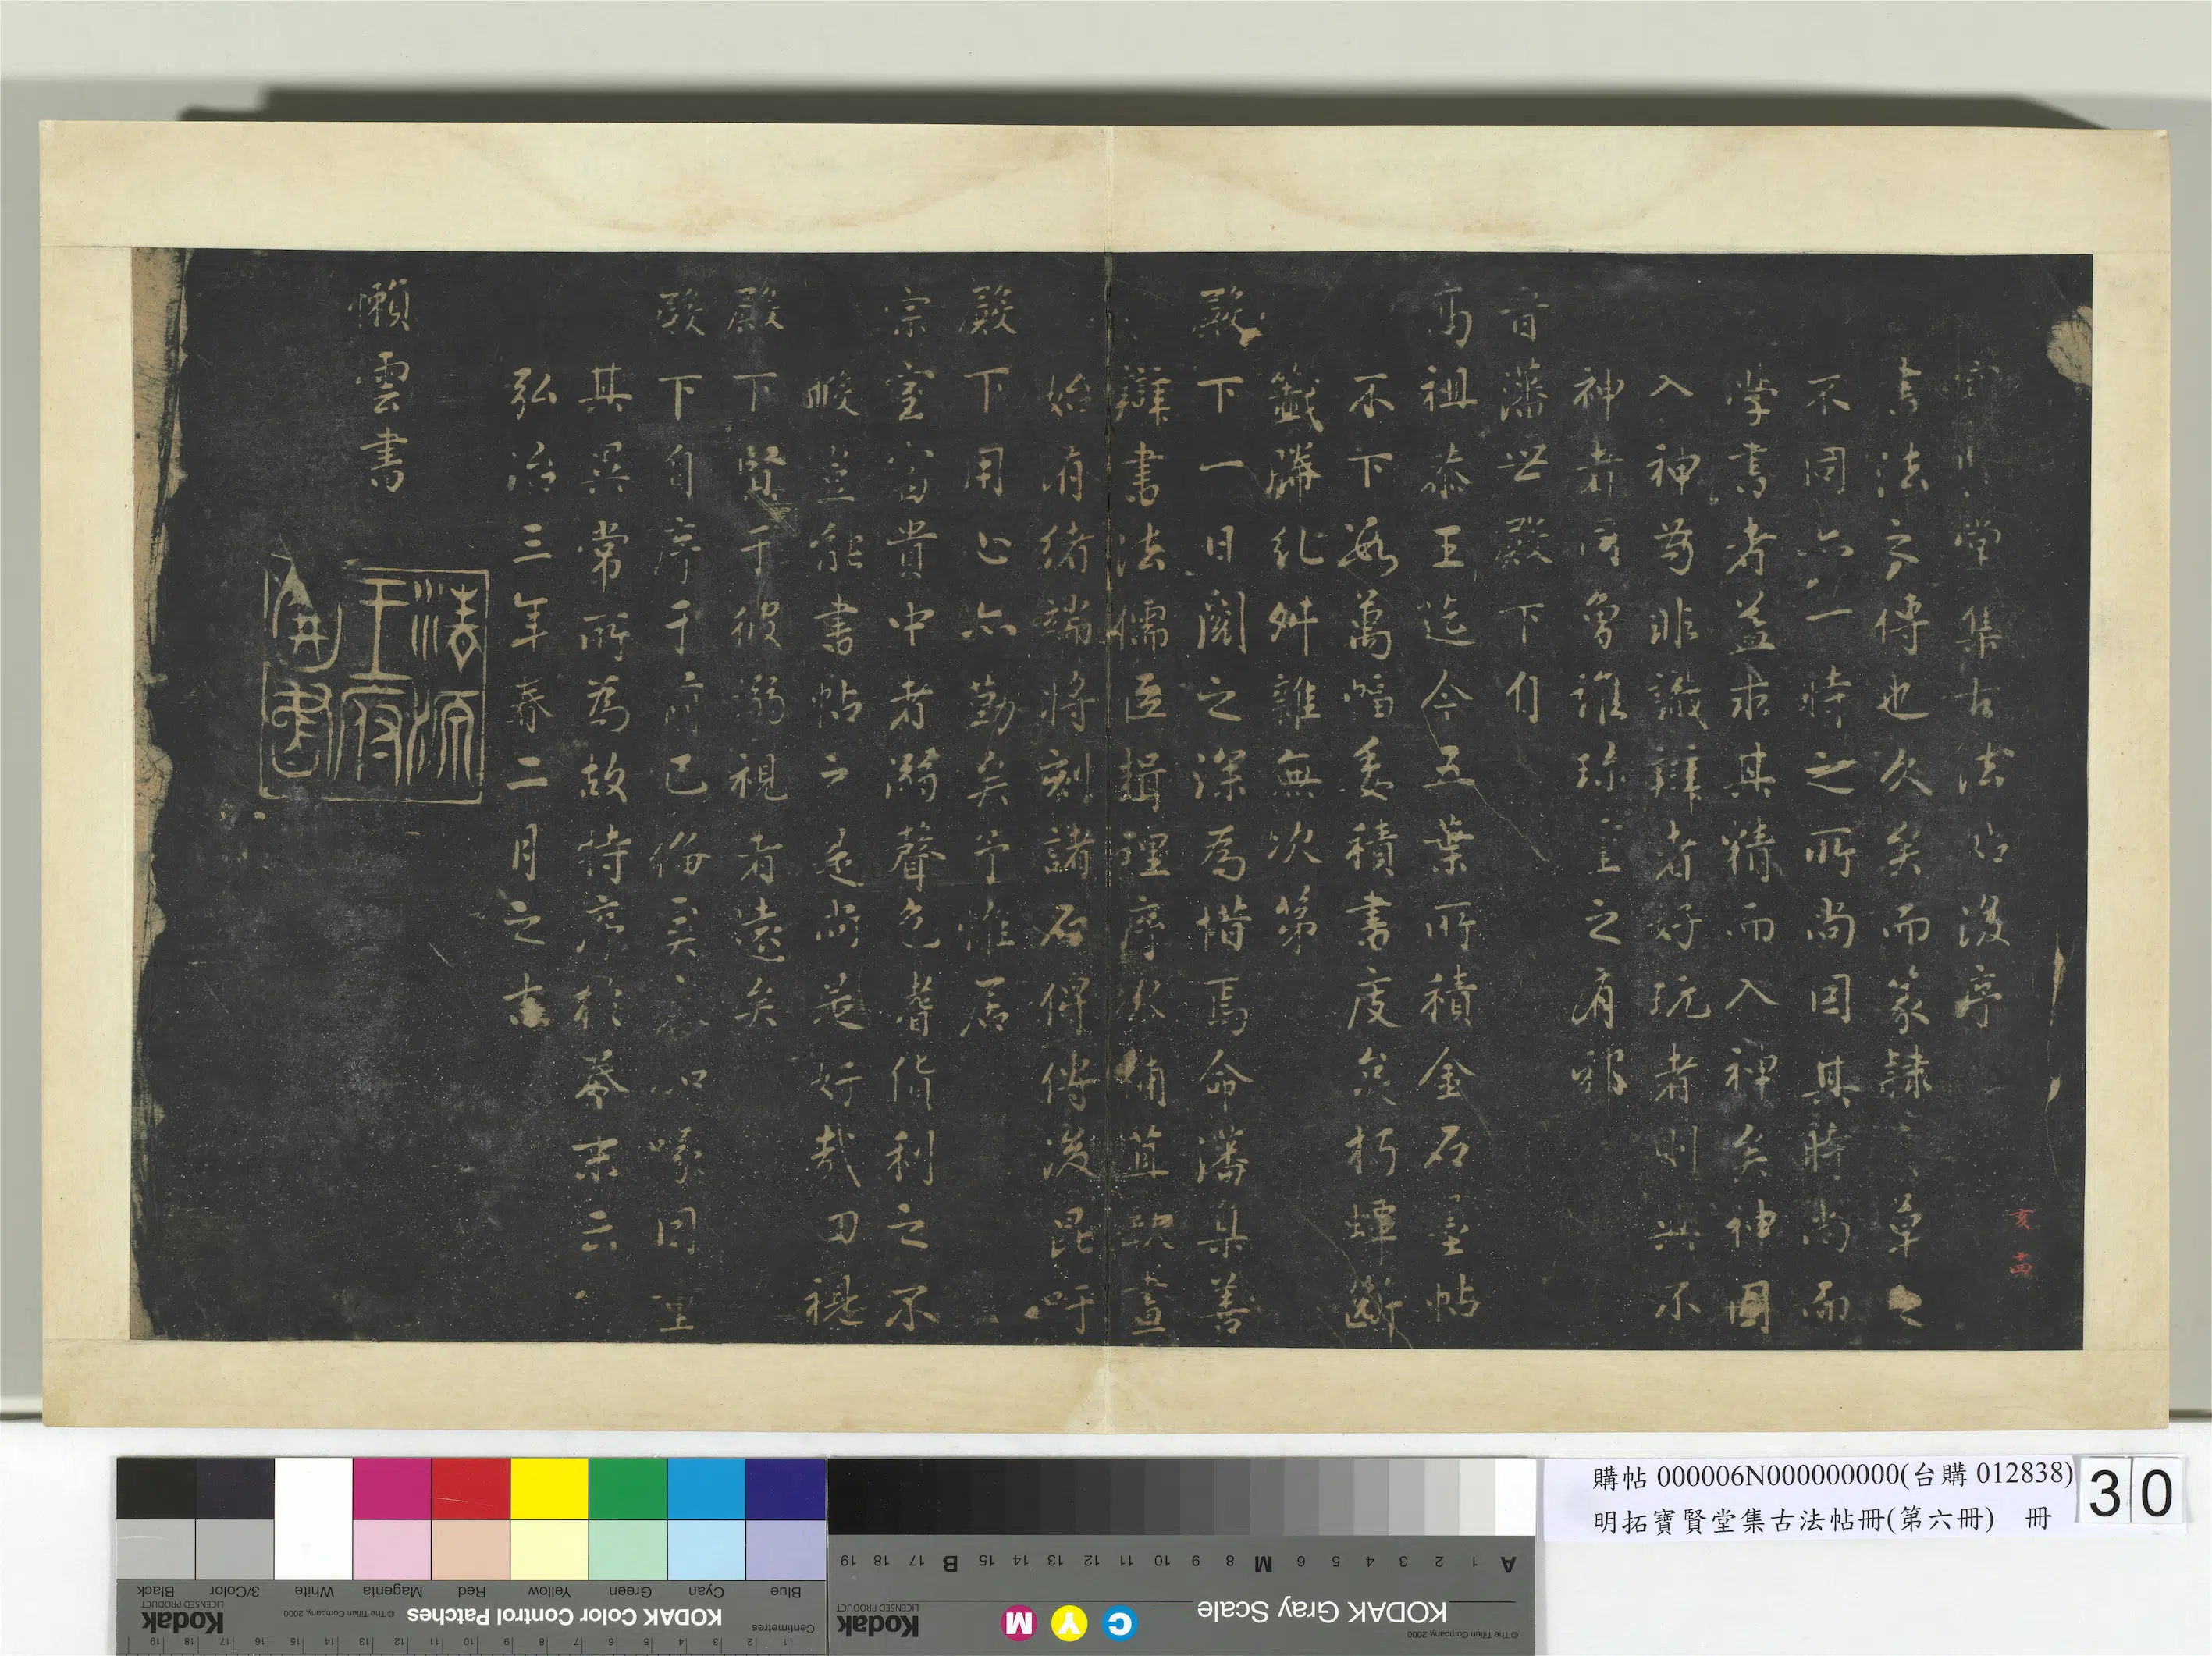 寶賢堂集古法帖後序
書法之傳也久矣而篆隸草之
不同亦一時之所尚因其時尚而
学書者益求其精而入神矣神固
入神苟非識辯者好玩者則与不
神者同
晋藩世殿下自
高祖恭王迄今五葉所積金石墨帖
不下數萬幅委積書庋久朽蟬斷
籤騰紕舛雜無次第
殿下一日閱之深為惜焉命藩集善
辯書法儒臣揖理序次補葺缺畫
始有緒端將刻諸石俾傳後昆吁
殿下用心亦勤矣予惟居
宗室富貴中者溺聲色嗜貨利之不
暇豈能書帖之是尚是好哉因視
殿下賢于彼溺視者遠矣
殿下自序于前已俻矣
其異常所為故特序於卷末云
弘治三年春二月之吉
懶雲書
法源
王府
圖書
亥
購帖 000006N000000000(台購 012838)
明拓寶賢堂集古法帖冊(第六冊) 冊
30
Blue Cyan Green Yellow Red Magenta White 3/Color Black
KODAK Color Control Patches
© The Tiffen Company, 2000
Kodak
LICENSED PRODUCT
Centimetres
1 2 3 4 5 6 7 8 9 10 11 12 13 14 15 16 17 18 19
A 1 2 3 4 5 6 M 8 9 10 11 12 13 14 15 B 17 18 19
KODAK Gray Scale
C Y M
Kodak
LICENSED PRODUCT
© The Tiffen Company, 2000